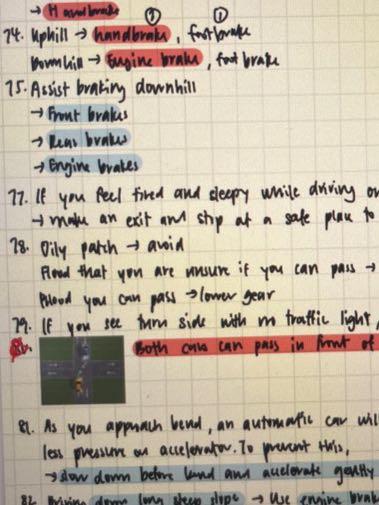 → Handbrake
② ①
74. Uphill → handbrake, footbrake
Downhill → Engine brake, foot brake
75. Assist braking downhill
→ Front brakes
→ Rear brakes
→ Engine brakes
77. If you feel tired and sleepy while driving
→ make an exit and stop at a safe place to
78. Oily patch → avoid
Flood that you are unsure if you can pass →
Flood you can pass → lower gear
79. If you see turn side with no traffic light,
Both cars can pass in front of
81. As you approach bend, an automatic car will
less pressure on accelerator. To prevent this,
→ slow down before bend and accelerate gently
82. Driving down long steep slope → Use engine brak